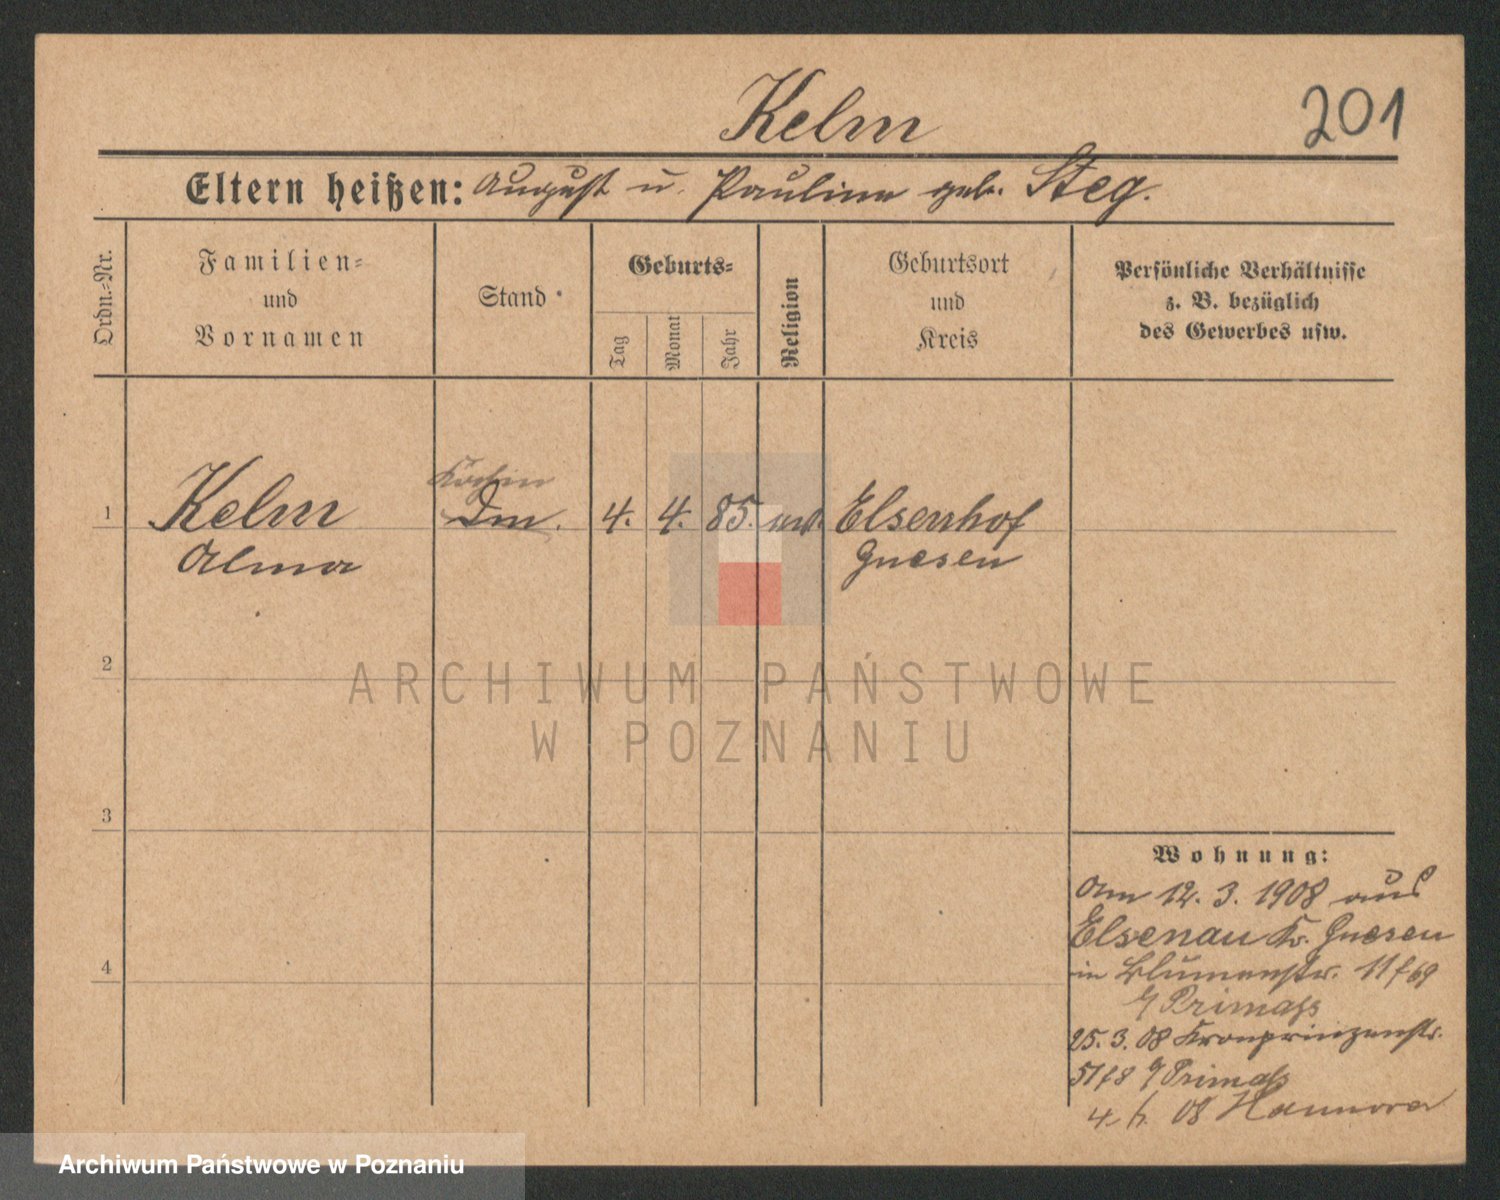 Kelm
201
Eltern heißen: August u. Pauline geb. Steg.
Ordn.=Nr.
Familien=
und
Vornamen
Stand
Geburts=
Tag
Monat
Jahr
Religion
Geburtsort
und
Kreis
Persönliche Verhältnisse
z. B. bezüglich
des Gewerbes usw.
Köchin
1 Kelm Dm. 4. 4. 85. ev. Elsenhof
Alma Gnesen
2
3
4
ARCHIWUM PAŃSTWOWE
W POZNANIU
Wohnung:
Am 12. 3. 1908 aus
Elsenau Kr. Gnesen
in Blumenstr. 11
Primass
25. 3. 08 Kronprinzenstr.
Primass
08 Hannover
Archiwum Państwowe w Poznaniu